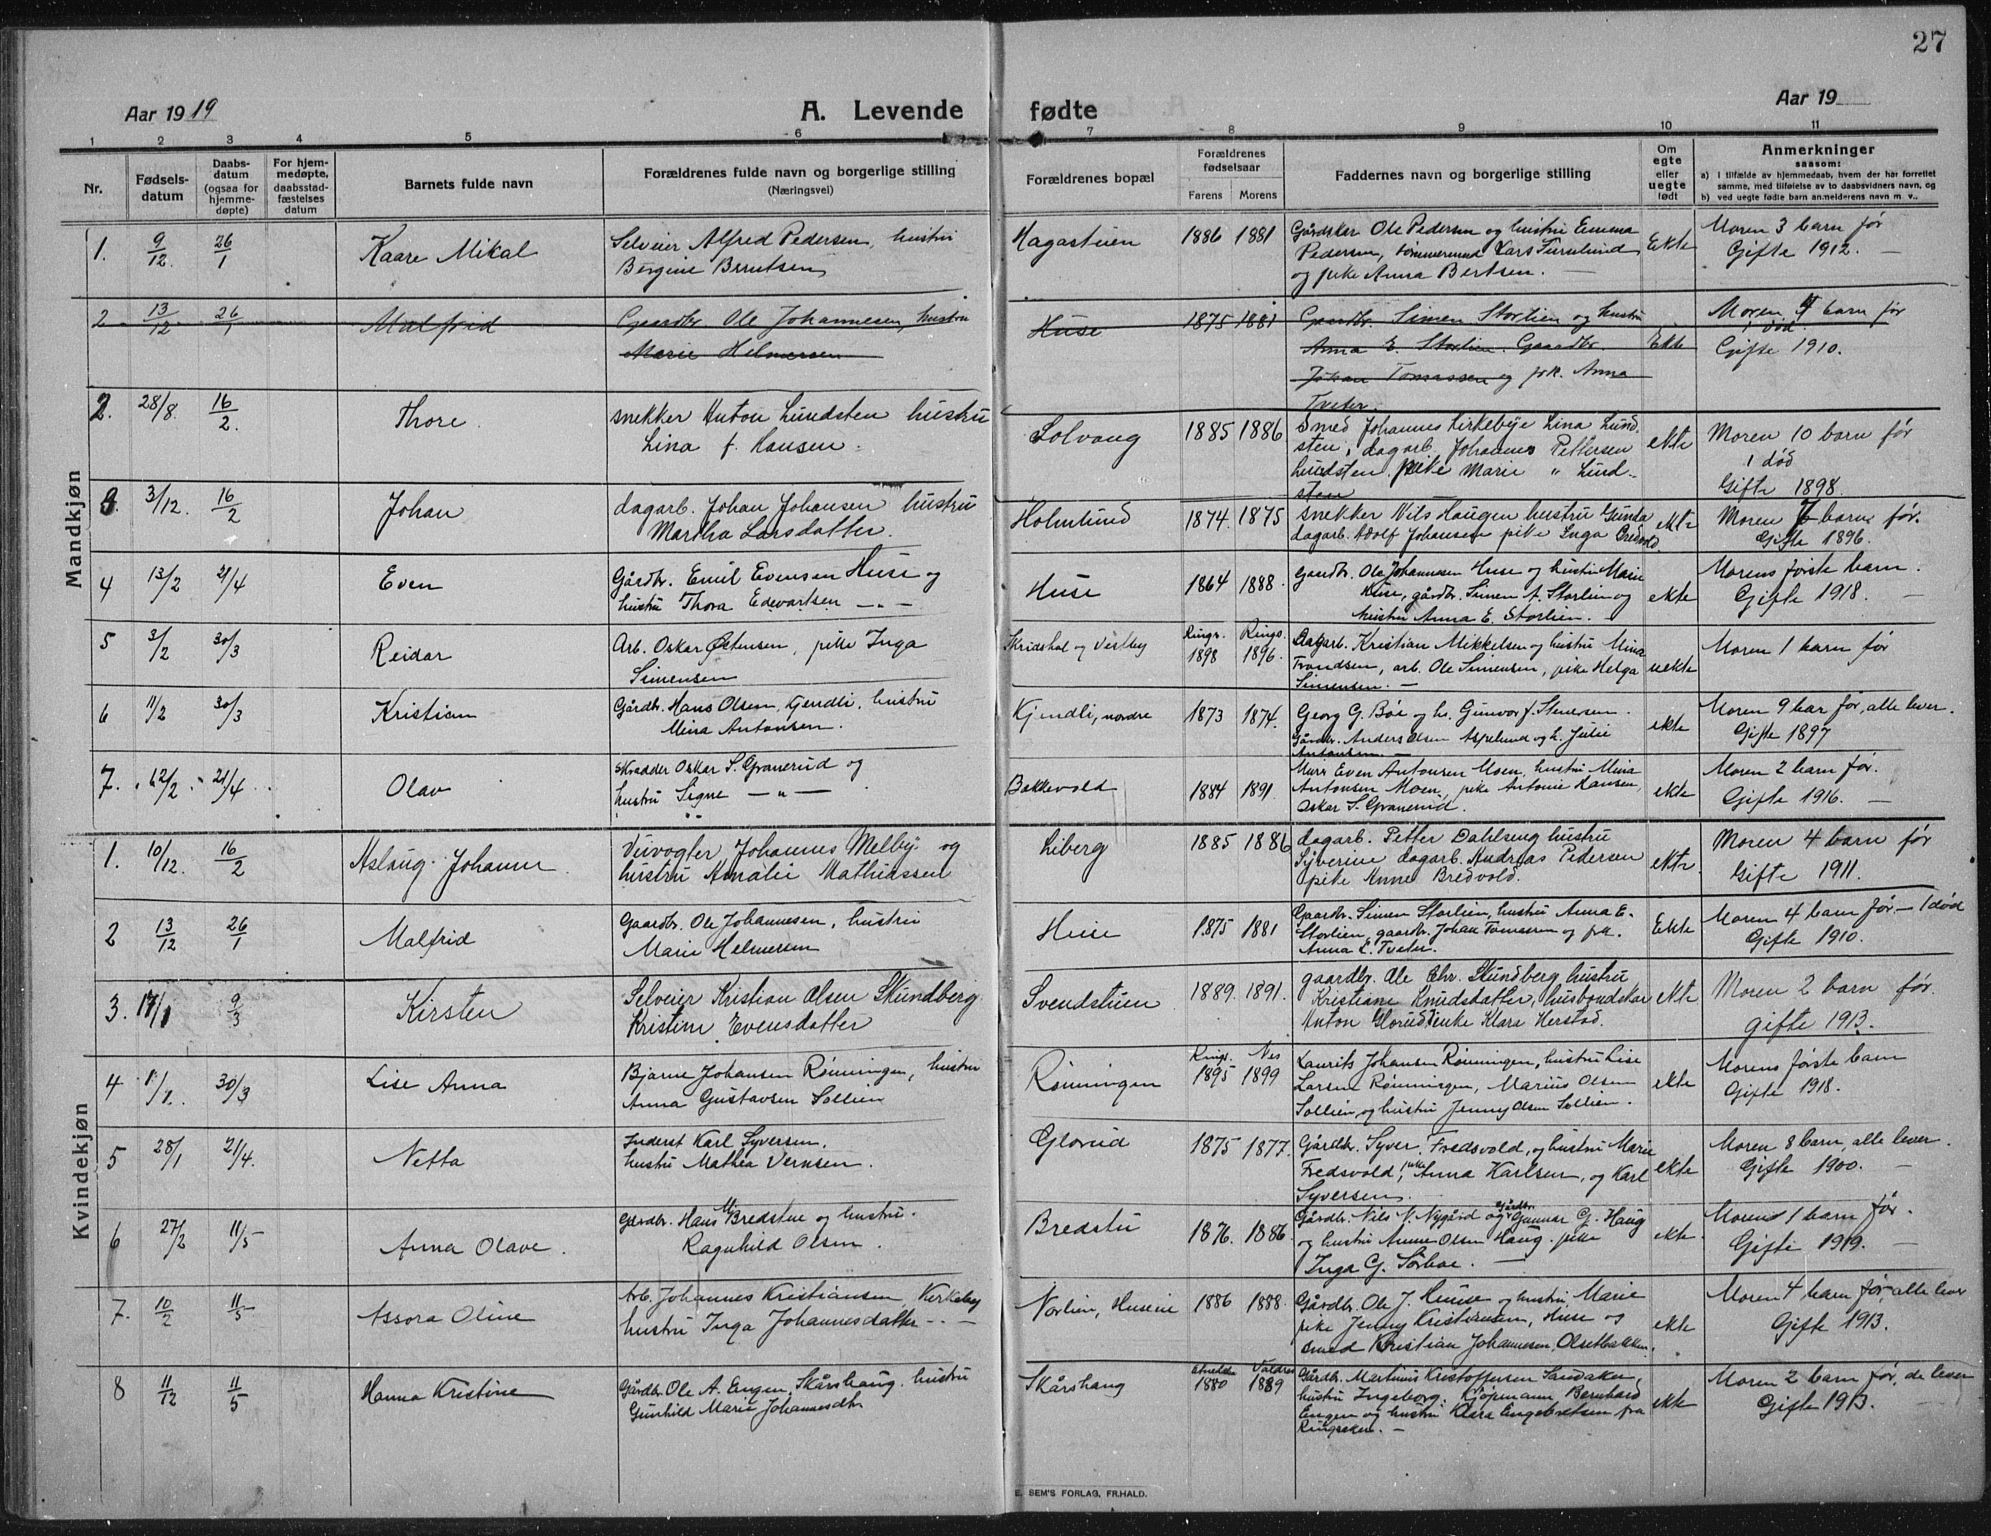 27
Aar 1919
A. Levende
fødte
Aar 19
1 2 3 4 5 6 7 8 9 10 11
Nr.
Fødsels-
datum
Daabs-
datum
(ogsaa for
hjemme-
døpte)
For hjem-
medøpte,
daabsstad-
fæstelses
datum
Barnets fulde navn
Forældrenes fulde navn og borgerlige stilling
(Næringsvei)
Forældrenes bopæl
Forældrenes
fødselsaar
Farens Morens
Faddernes navn og borgerlige stilling
Om
egte
eller
uegte
født
Anmerkninger
saasom:
a) I tilfælde av hjemmedaab, hvem der har forrettet
samme, med tilføielse av to daabsvidners navn, og
b) ved uegte fødte barn anmelderens navn m. v..
Mandkjøn
1. 9/12. 26/1 Kaare Mikal
Selveier Alfred Pedersen, hustru
Bergine Berntsen
Hagastuen 1886 1881
Gårdsker Ole Pedersen og hustru Emma
Pedersen, tømmermand Lars
og pike Anna Bertsen. —
Ekte
Moren 3 barn før
Gifte 1912. —
2 13/12 26/1 Malfrid
Gaardbr. Ole Johannesen, hustru
Marie Helmersen
Huse 1875 1881
Gaardbr. Simen Storlien og hustru
Anna E. Storlien. Gaardbr.
Johan Tomassen og pik. Anna
Tveter.
Ekte
Moren 4 barn før
1 død.
Gifte 1910.
2. 28/8. 16/2. Thore.
snekker Anton Lundsten hustru
Lina f. Hansen
Solvang 1885 1886
Smed Johannes Kirkebye Lina Lund-
sten, dagarb. Johannes Pettersen
Lundsten. pike Marie " Lund-
sten
ekte
Moren 10 barn før
1 død
Gifte 1898.
3. 3/12. 16/2 Johan
dagarb. Johan Johansen hustru
Martha Larsdatter.
Holmlund 1874. 1875
snekker Nils Haugen hustru Gunda
dagarb. Adolf Johansen pike Inga Bredvold.
ekte
Moren 7 barn før.
Gifte 1896.
4 13/2 21/4 Even
Gårdbr. Emil Evensen Huse og
hustru Thora Edevartsen — " —
Huse 1864 1888.
Gaardbr. Ole Johannesen Huse og hustru Marie
Huse, gårdbr. Simen A. Storlien og
hustru Anna E. Storlien.
ekte
Morens første barn.
Gifte 1918. —
5 3/2 30/3 Reidar
Arb. Oskar Østensen, pike Inga
Simensen
Skridshol og Vestby
Rings. 1898 Rings. 1896.
Dagarb. Kristian Mikkelsen og hustru Mina
Frandsen, arb. Ole Simensen, pike Helga
Simensen. —
uekte
Moren 1 barn før
6 11/2 30/3 Kristian
Gårdbr. Hans Olsen, Kjendli, hustru
Mina Antonsen.
Kjendli, nordre 1873 1874.
Georg G. Bøe og h. Gunvor f. Stenersen.
Gårdbr. Anders Olsen Aspelund og h. Julie
Antonsen —
ekte
Moren 9 bar før, alle lever.
Gifte 1897
7. 12/2 21/4 Olav
Skradder Oskar S. Granerud og
hustru Signe — " —
Bakkevold 1884 1891.
Murer Even Antonsen Moen, hustru Mina
Antonsen Moen, pike Antonie Hansen,
Oskar S. Granerud.
ekte
Moren 2 barn før.
Gifte 1916. —
Kvindekjøn
1. 10/12. 16/2 Aslaug Johanne
Veivogter Johannes Melby og
hustru Amalie Mathiassen
Liberg 1885 1886
dagarb. Petter Dahlseng hustru
Syverine dagarb. Andreas Pedersen
pike Anne Bredvold.
ekte
Moren 4 barn før
Gifte 1911.
2 13/12 26/1 Malfrid
Gaardbr. Ole Johannesen, hustru
Marie Helmersen
Huse 1875 1881
Gaardbr. Simen Storlien, hustru Anna E.
Storlien, gaardbr. Johan Tomassen og pk.
Anna E. Tveter.
Ekte
Moren 4 barn før. — 1 død
Gifte 1910.
3. 17/1 9/3 Kirsten
Selveier Kristian Olsen Skundberg.
Kristine Evensdatter
Svendstuen 1889. 1891.
gaardbr. Ole Chr. Skundberg hustru
Kristiane Knudsdatter, husbondskar
Anton Glorud enke Klara Herstad.
ekte
Moren 2 barn før.
gifte 1913.
4 1/1. 30/3 Lise Anna
Bjarne Johansen Rønningen, hustru
Anna Gustavsen Sollien
Rønningen
Rings. 1895 Nes 1899
Laurits Johansen Rønningen, hustru Lise
Larsen Rønningen, Marius Olsen
Sollien, og hustru Jenny Olsen Sollien.
ekte
Morens første barn
Gifte 1918. —
5 28/1 21/4. Netta
Inderst Karl Syversen,
hustru Mathea Vernsen.
Glorud 1875 1877.
Gårdbr. Syver Fredsvold, og hustru Marie
Fredsvold, pike Anna Karlsen, og Karl
Syversen.
ekte
Moren 8 barn, alle lever.
Gifte 1900. —
6 27/2 11/5 Anna Olave.
Gårdbr. Hans M. Bredstue og hustru.
Ragnhild Olsen.
Bredstu 1876. 1886.
Gårdbr. Nils N. Nygård og Gårdbr. Gunnar G. Haug
og hustru Anne Olsen Haug. pike
Inga G. Sørboe. —
ekte
Moren 1 barn før.
Gifte 1919. —
7. 10/2 11/5 Assora Oline
Arb. Johannes Kristiansen Kirkeby
hustru Inga Johannesdatter - " —
Norlien, Huseeie 1886 1888.
Gårdbr. Ole J. Huuse og hustru Marie
pike Jenny Kristiansen, Huse og
smed Kristian Johannesen, Olsetbakken.
ekte
Moren 4 barn før, alle lever
Gifte 1913.
8 11/12 11/5 Hanna Kristine
Gårdbr. Ole A. Engen, Skårshaug, hustru
Gunhild Marie Johannesdtr
Skårshaug
Etnedalen 1880 Valdres 1889
Gårdbr. Martinus Kristoffersen Sandaker,
hustru Ingeborg. Kjøpmann Bernhard
Engen og hustru Klara Engebretsen fra
Ringsaker. —
ekte
Moren 2 barn før, de lever
Gifte 1913. —
E. SEM'S FORLAG, FR.HALD.